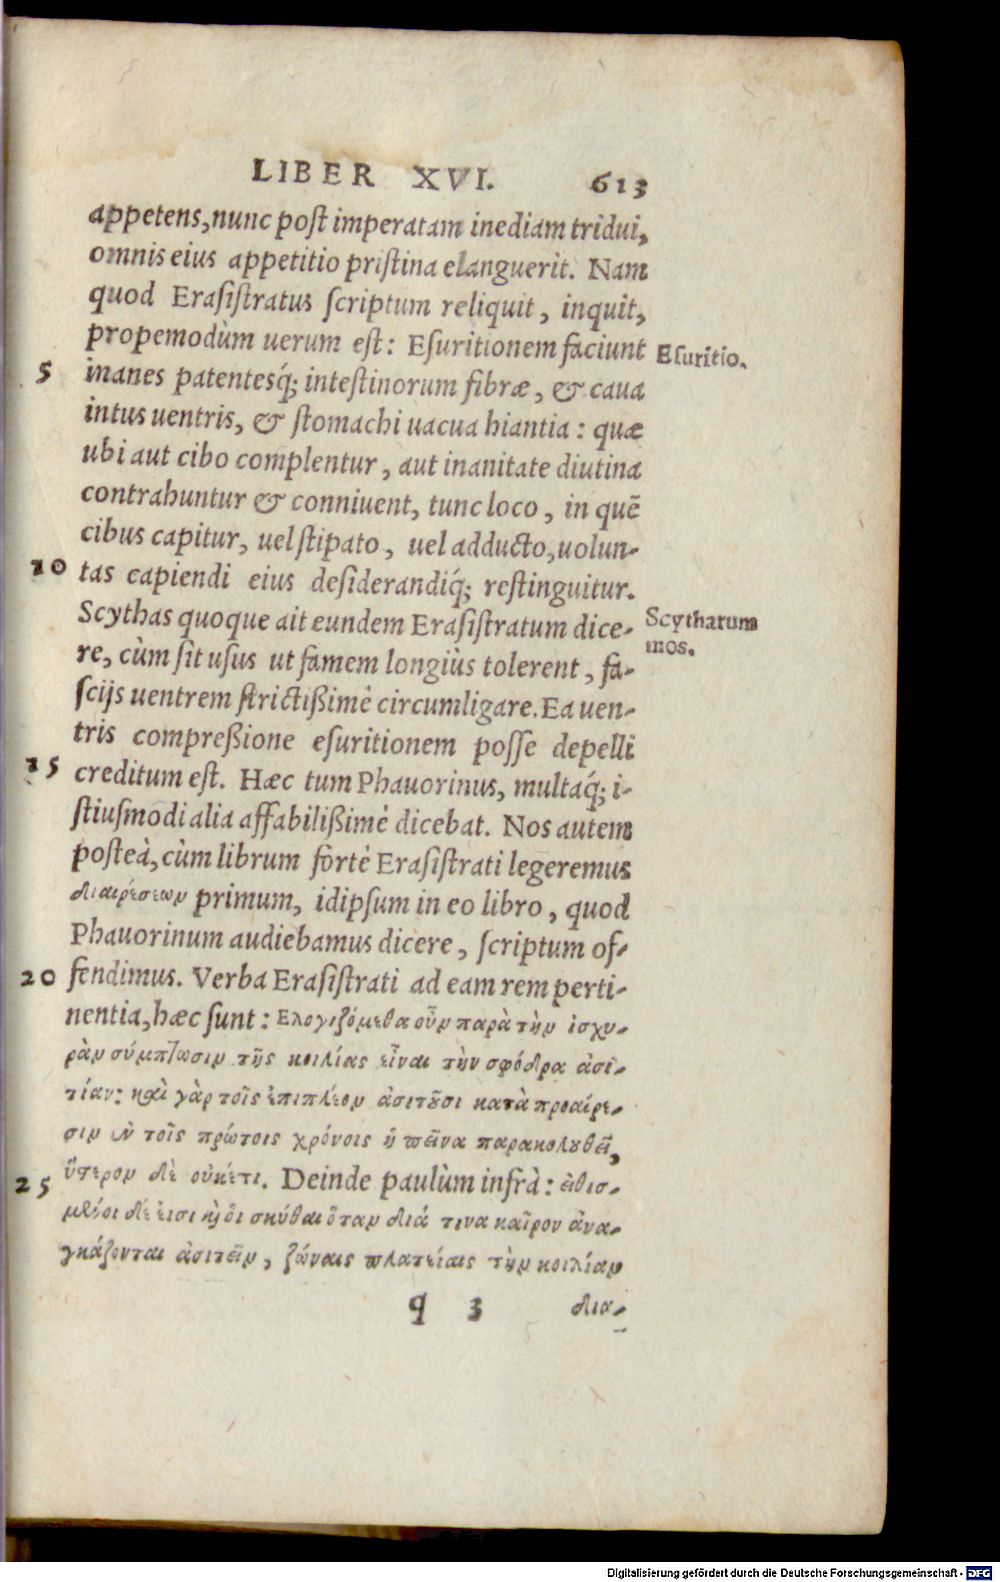 LIBER XVI. 613
appetens, nunc post imperatam inediam tridui,
omnis eius appetitio pristina elanguerit. Nam
quod Erasistratus scriptum reliquit, inquit,
propemodùm uerum est: Esuritionem faciunt
Esuritio.
5 inanes patentesq́; intestinorum fibræ, & caua
intus uentris, & stomachi uacua hiantia: quæ
ubi aut cibo complentur, aut inanitate diutina
contrahuntur & conniuent, tunc loco, in quē
cibus capitur, uel stipato, uel adducto, uolun-
10 tas capiendi eius desiderandiq́; restinguitur.
Scythas quoque ait eundem Erasistratum dice-
Scytharum
mos.
re, cùm sit usus ut famem longiùs tolerent, fa-
scijs uentrem strictißimè circumligare. Ea uen-
tris compreßione esuritionem posse depelli
15 creditum est. Hæc tum Phauorinus, multaq́; i-
stiusmodi alia affabilißimè dicebat. Nos autem
posteà, cùm librum fortè Erasistrati legeremus
διαιρέσεων primum, idipsum in eo libro, quod
Phauorinum audiebamus dicere, scriptum of-
20 fendimus. Verba Erasistrati ad eam rem perti-
nentia, hæc sunt: Ελογιζόμεθα οὖν παρὰ τὴν ἰσχυ-
ρὰν σύμπτωσιν τῆς κοιλίας εἶναι τὴν σφόδρα ἀσι-
τίαν: καὶ γὰρ τοῖς ἐπιπλέον ἀσιτοῦσι κατὰ προαίρε-
σιν ἐν τοῖς πρώτοις χρόνοις ἡ πεῖνα παρακολουθεῖ,
25 ὕστερον δὲ οὐκέτι. Deinde paulùm infrà: εἰθισ-
μένοι δέ εἰσι καὶ ὁι σκύθαι ὅταν διά τινα καῖρον ἀνα-
γκάζονται ἀσιτεῖν, ζώναις πλατείαις τὴν κοιλίαν
q 3 δια-
Digitalisierung gefördert durch die Deutsche Forschungsgemeinschaft - DFG